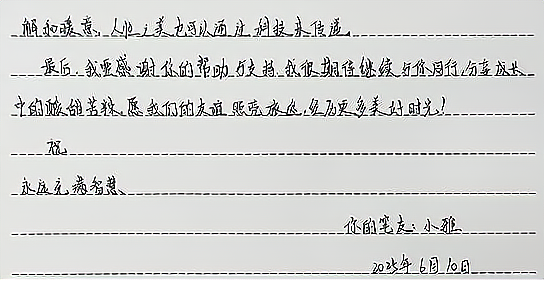 解和暖意、人性之美也可以通过科技来传递。
最后,我要感谢你的帮助与支持,我很期待继续与你同行,分享成长
中的酸甜苦辣,愿我们的友谊照亮旅途,经历更多美好时光!
祝
永远充满智慧
你的笔友:小雅
2025年6月10日